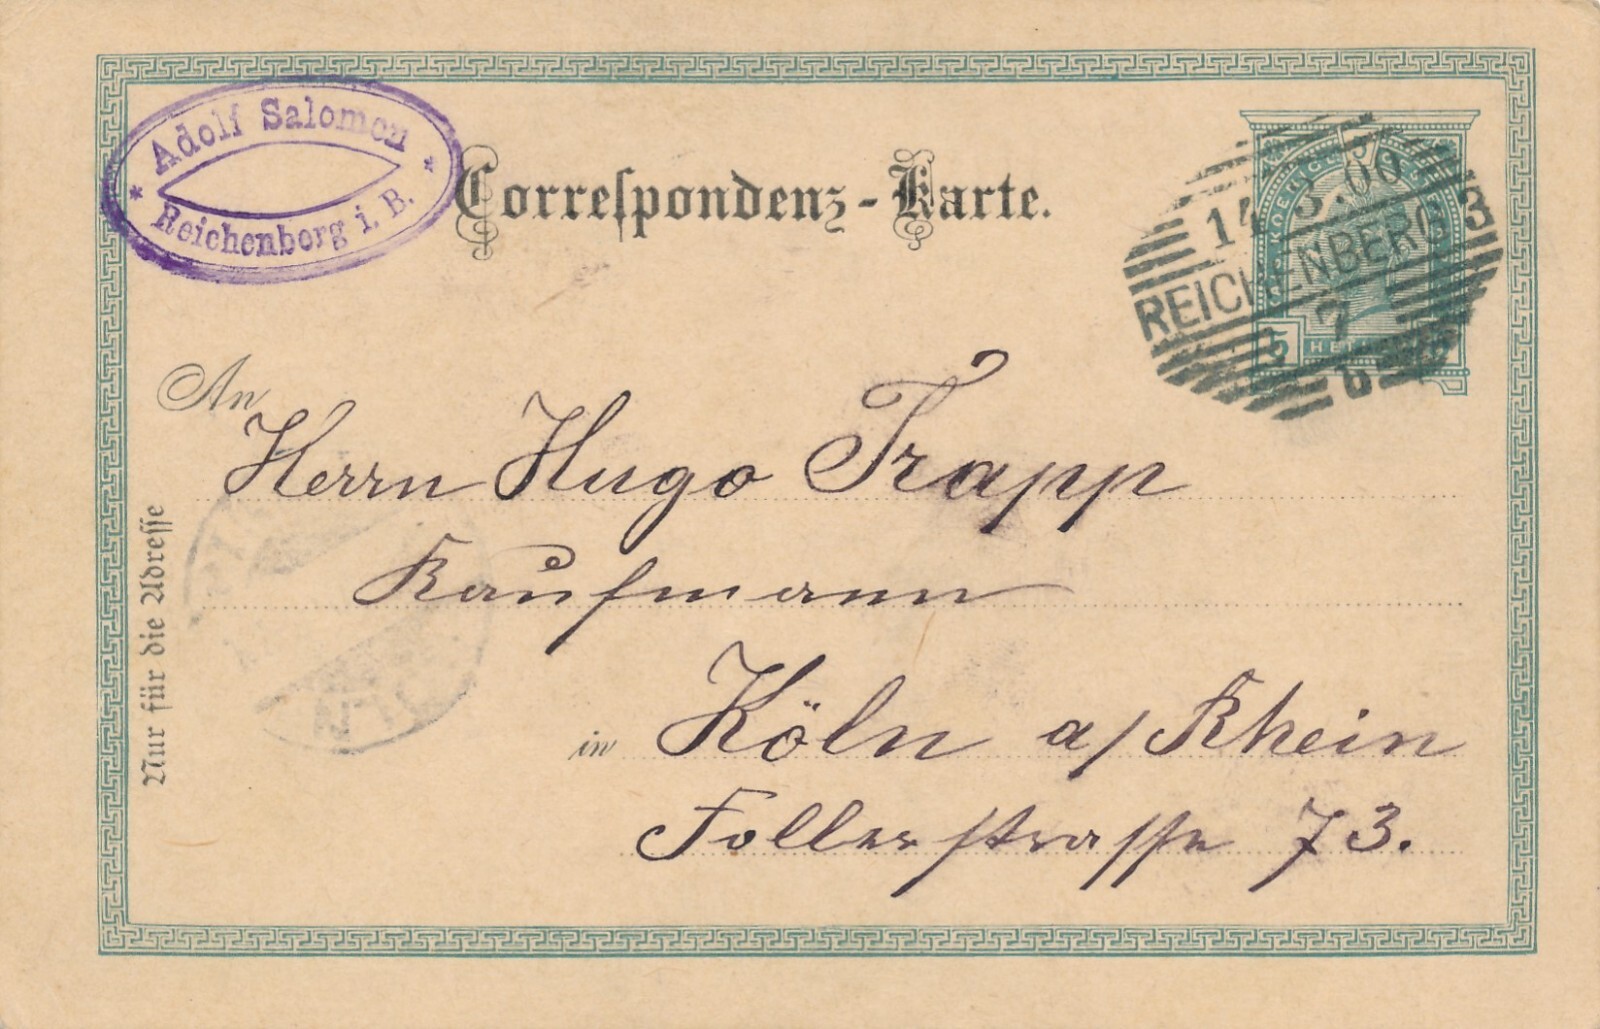 Adolf Salomon
Reichenberg i. B.
Correspondenz-Karte.
14.3.00
REICHENBERG 3
7
5 HELLER
An Herrn Hugo Trapp
Kaufmann
in Köln a/Rhein
Follerstrasse 73.
Nur für die Adresse